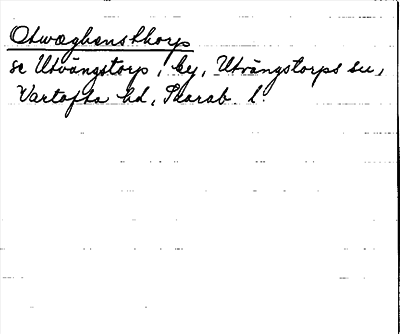 Otwæghensthorp
se Utvängstorp, by, Utvängstorps sn,
Vartofta hd, Skarab. l.